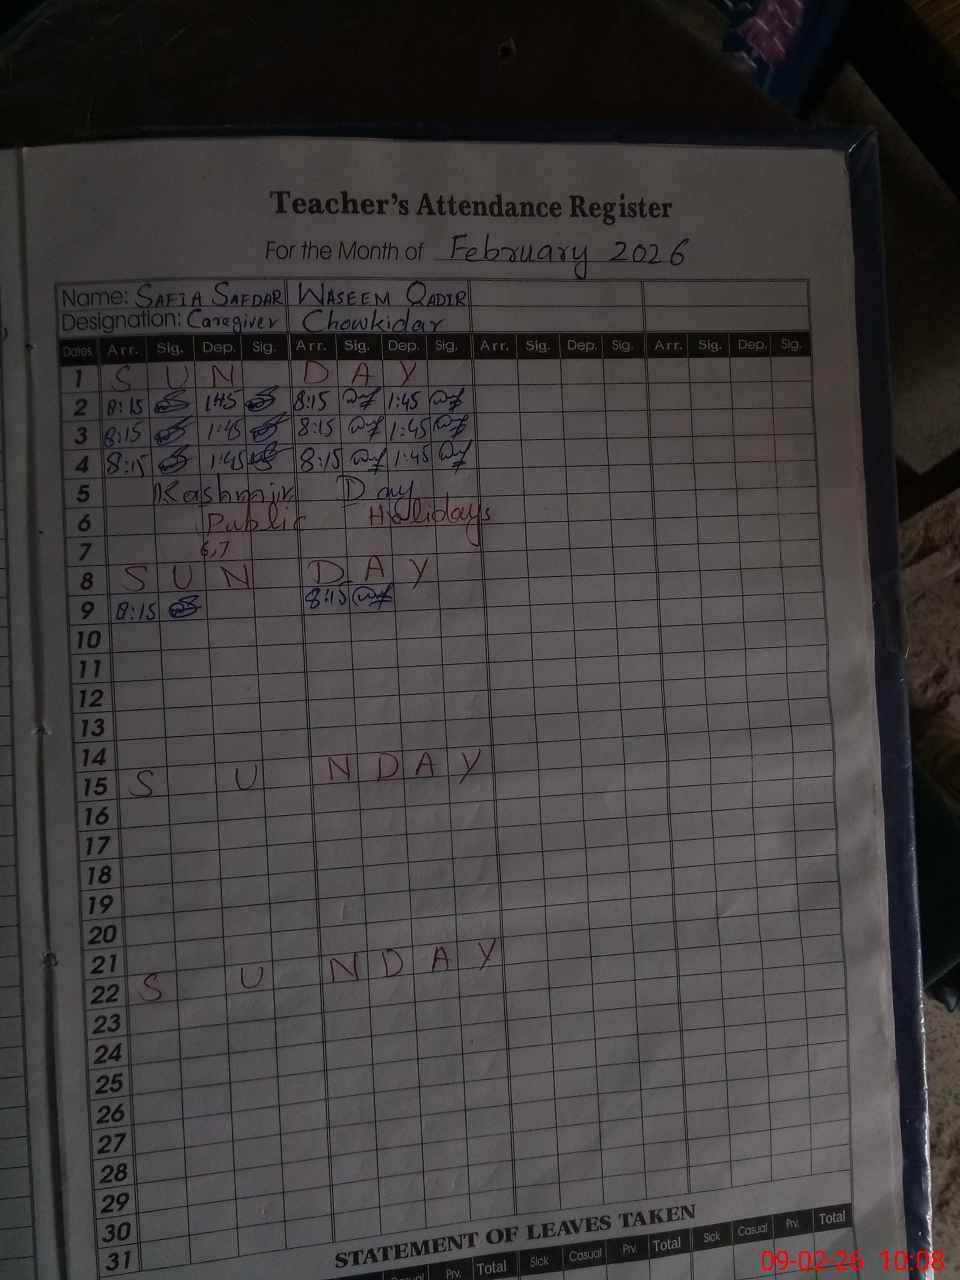 Teacher's Attendance Register
For the Month of February 2026
Name: SAFIA SAFDAR WASEEM QADIR
Designation: Caregiver Chowkidar
Dates Arr. Sig. Dep. Sig. Arr. Sig. Dep. Sig. Arr. Sig. Dep. Sig. Arr. Sig. Dep. Sig.
1 S U N D A Y
2 8:15 1:45 8:15 1:45
3 8:15 1:45 8:15 1:45
4 8:15 1:45 8:15 1:45
5 Kashmir Day
6 Public Holidays
7 6,7
8 S U N D A Y
9 8:15 8:15
10
11
12
13
14
15 S U N D A Y
16
17
18
19
20
21
22 S U N D A Y
23
24
25
26
27
28
29
30
31
STATEMENT OF LEAVES TAKEN
Casual Prv. Total Sick Casual Prv. Total Sick Casual Prv. Total
09-02-26 10:08